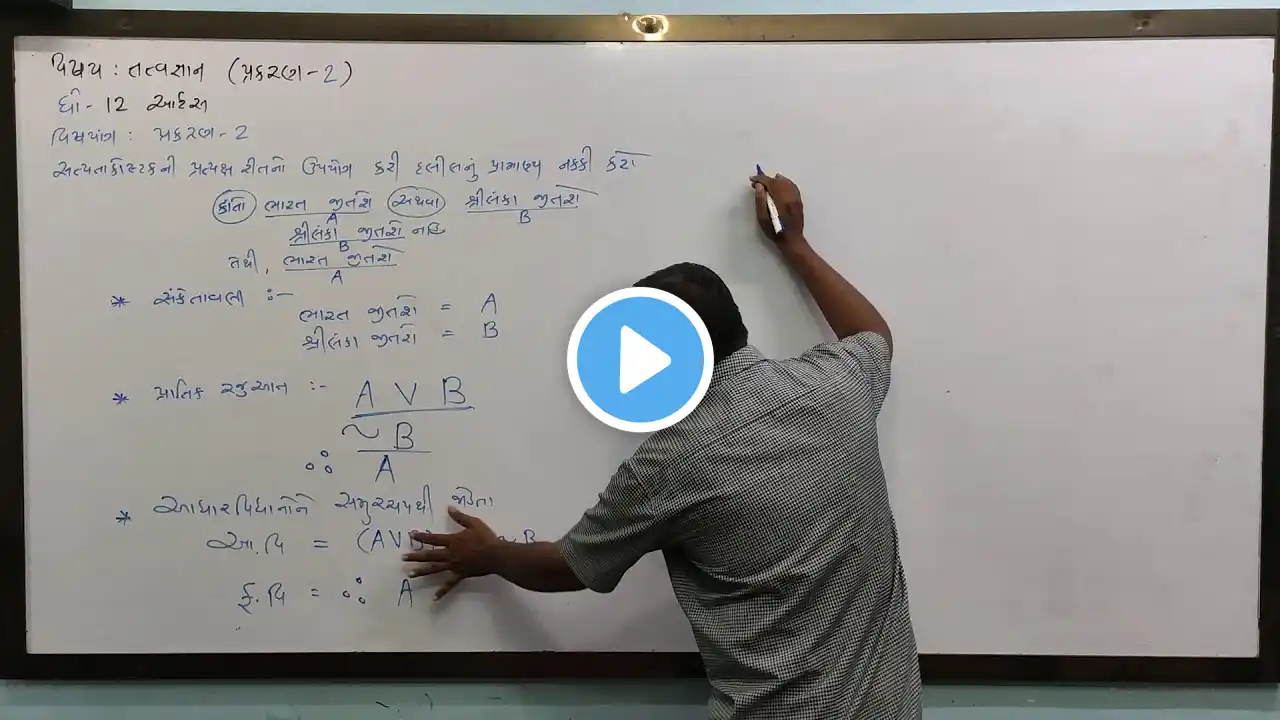 વિષય : તત્વજ્ઞાન (પ્રકરણ-2)
ધો - 12 આર્ટસ
વિષયાંગ : પ્રકરણ - 2
સત્યતાકોષ્ટકની પ્રત્યક્ષ રીતનો ઉપયોગ કરી દલીલનું પ્રામાણ્ય નક્કી કરો
કાંતો ભારત જીતશે અથવા શ્રીલંકા જીતશે
A B
શ્રીલંકા જીતશે નહિ
B
તેથી, ભારત જીતશે
A
* સંકેતાવલી :-
ભારત જીતશે = A
શ્રીલંકા જીતશે = B
* પ્રતિક રજુઆત :- A V B
~ B
∴ A
* આધારવિધાનોને સમુચ્ચયથી જોડતા
આ.વિ = (A V B) ~ B
ફ.વિ = ∴ A